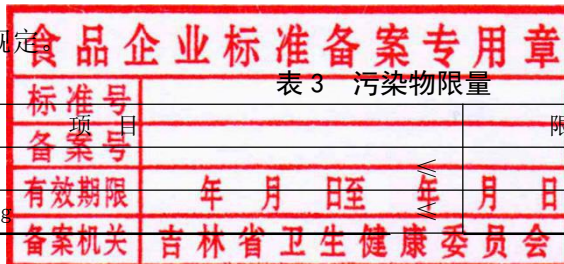 规定。
食品企业标准备案专用章
表 3 污染物限量
标准号
项 目 限
备案号
≤
有效期限 年 月 日至 年 月 日
g ≤
备案机关 吉林省卫生健康委员会